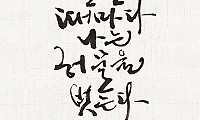 때마다
나는
허물을
벗는다